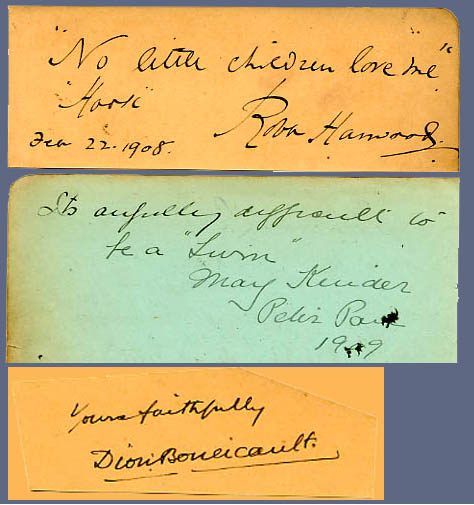 "No little children love me"
"Hook"
Robb Harwood.
Feb 22. 1908.
Its awfully difficult to
be a "Twin"
May Kinder
Peter Pan
1909
Yours faithfully
Dion Boucicault.